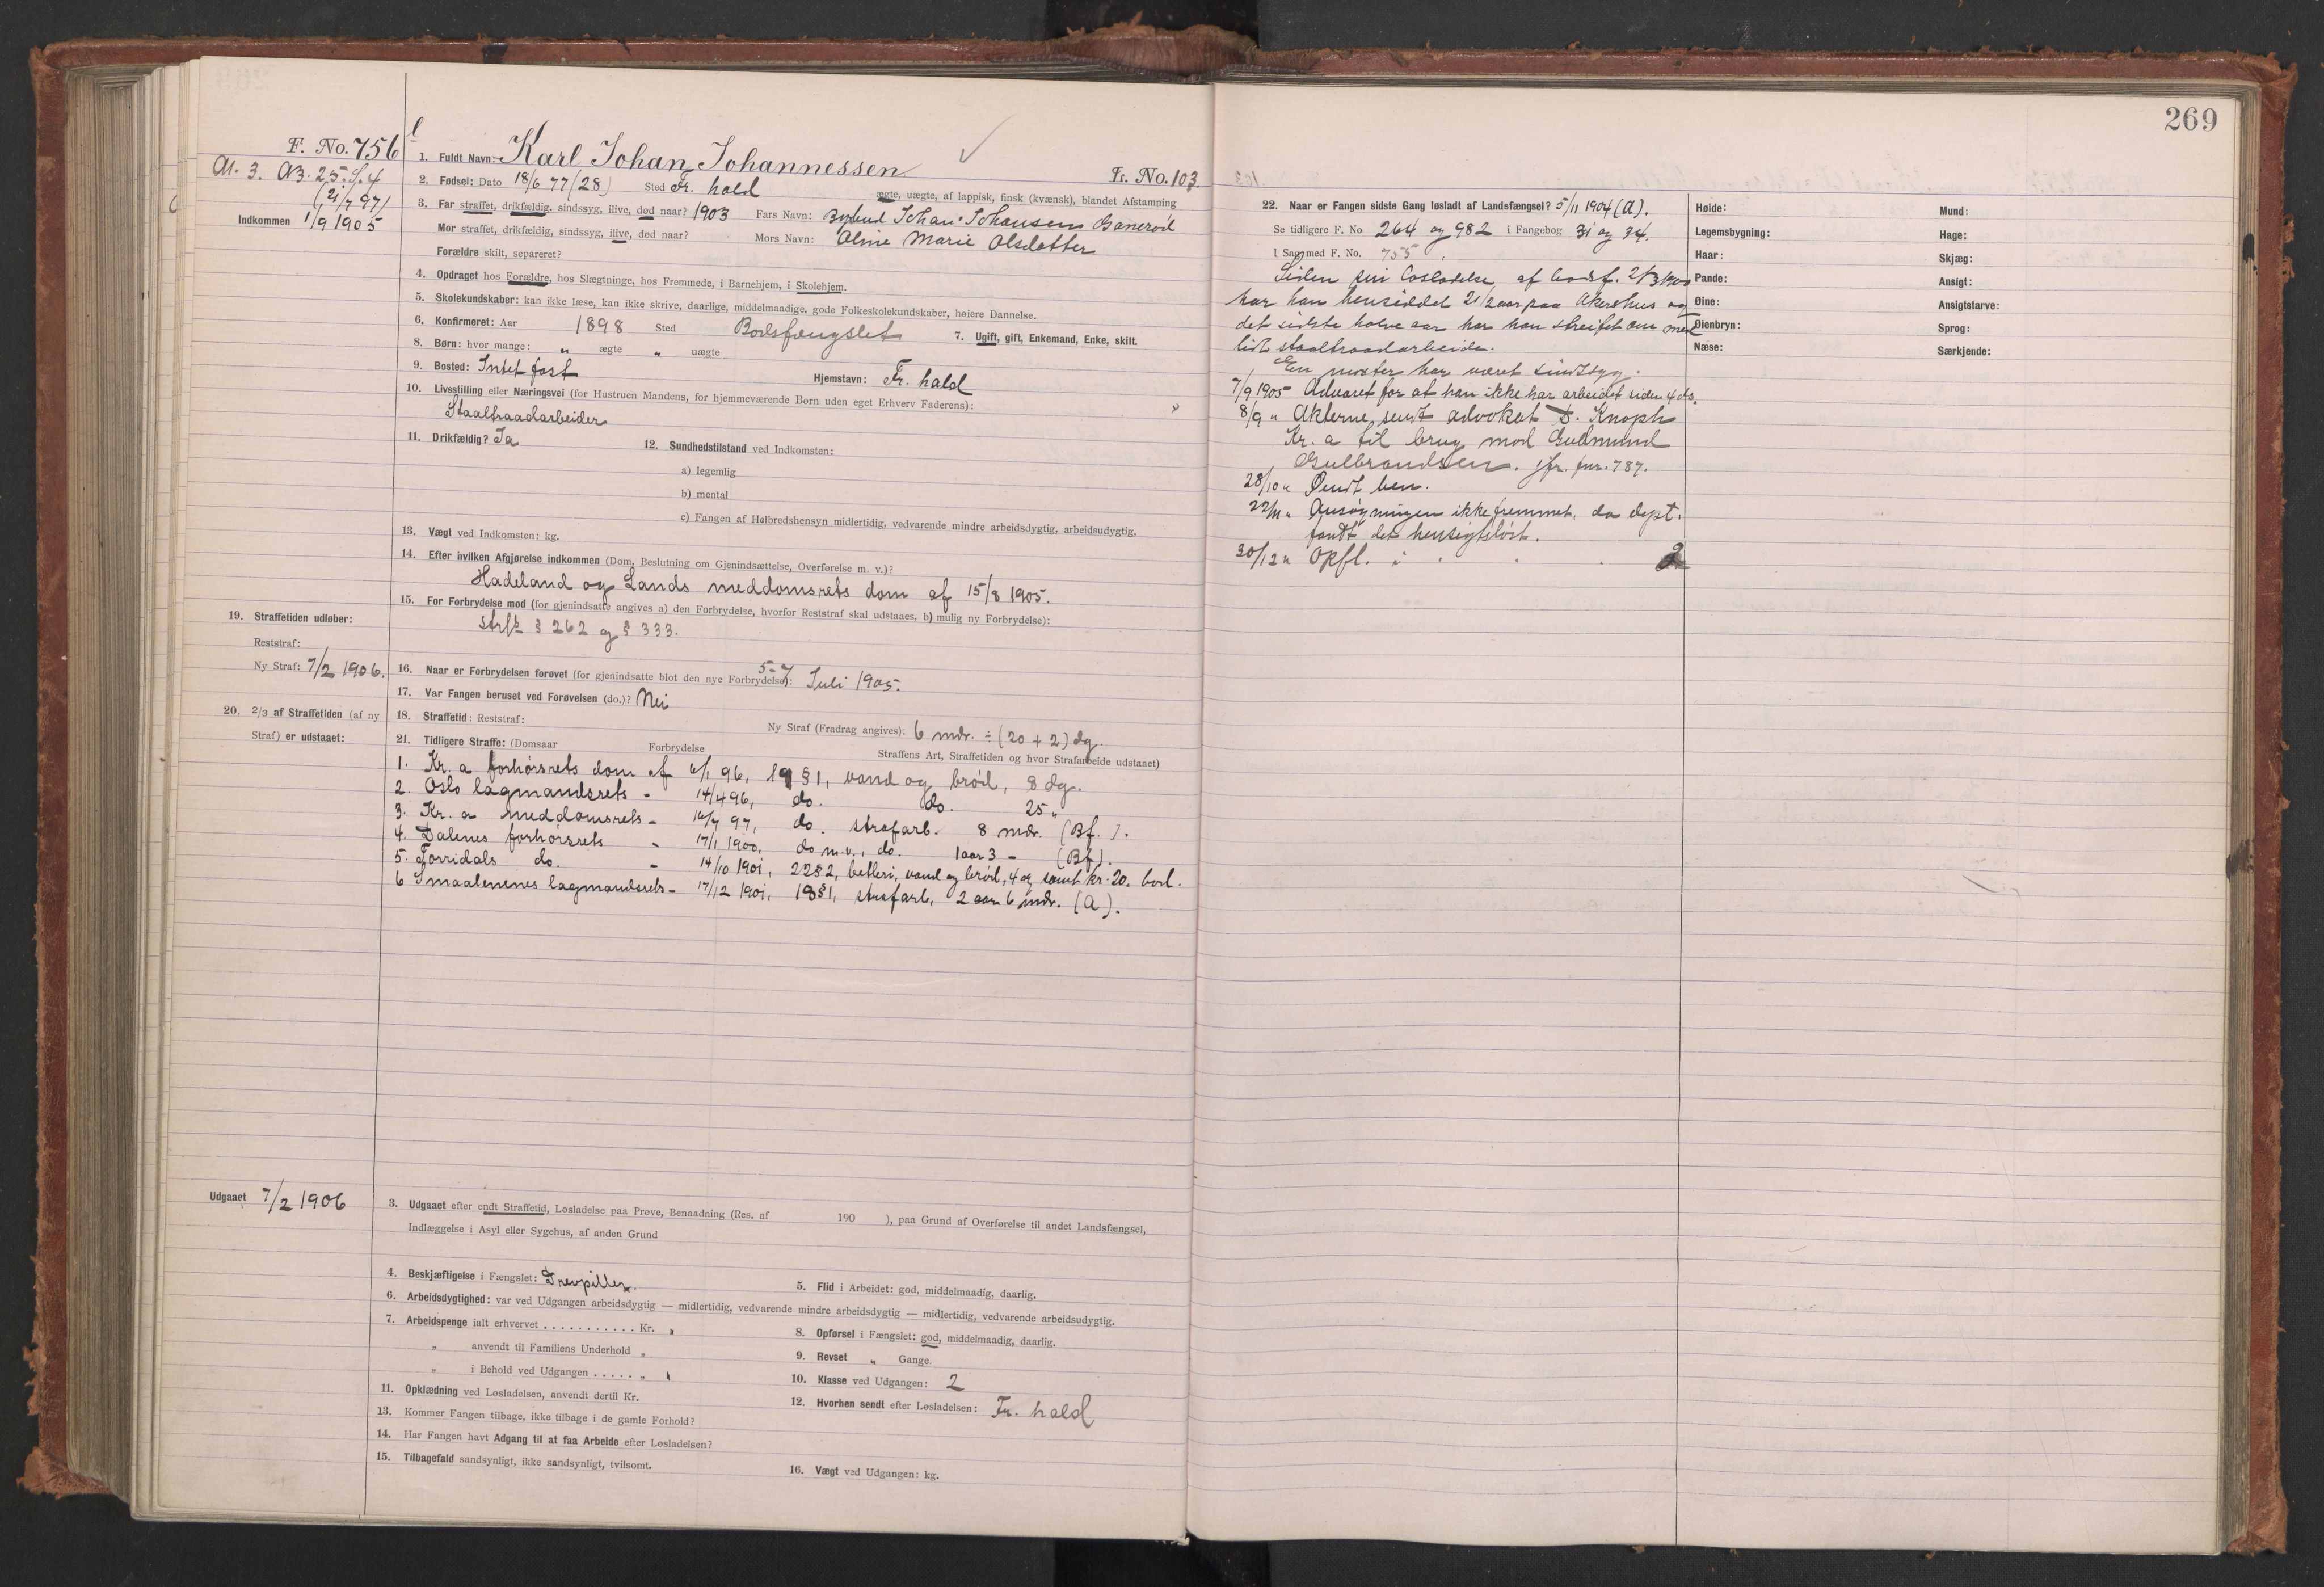 269
F. No. 756
A. 3. B. 25. S. 4
(21/7 97)
Indkommen 1/9 1905
1. Fuldt Navn: Karl Johan Johannessen
Fr. No. 103
2. Fødsel: Dato 18/6 77 (28) Sted Fr. hald
ægte, uægte, af lappisk, finsk (kvænsk), blandet Afstamning
3. Far straffet, drikfældig, sindssyg, ilive, død naar? 1903 Fars Navn: Johan Johansen
Mor straffet, drikfældig, sindssyg, ilive, død naar? Mors Navn: Oline Marie Olsdatter
Forældre skilt, separeret?
4. Opdraget hos Forældre, hos Slægtninge, hos Fremmede, i Barnehjem, i Skolehjem.
5. Skolekundskaber: kan ikke læse, kan ikke skrive, daarlige, middelmaadige, gode Folkeskolekundskaber, høiere Dannelse.
6. Konfirmeret: Aar 1898 Sted Bodsfængslet 7. Ugift, gift, Enkemand, Enke, skilt.
8. Børn: hvor mange: „ ægte „ uægte
9. Bosted: Intet fast Hjemstavn: Fr. hald
10. Livsstilling eller Næringsvei (for Hustruen Mandens, for hjemmeværende Børn uden eget Erhverv Faderens):
Staaltraadarbeider
11. Drikfældig? Ja 12. Sundhedstilstand ved Indkomsten:
a) legemlig
b) mental
c) Fangen af Helbredshensyn midlertidig, vedvarende mindre arbeidsdygtig, arbeidsudygtig.
13. Vægt ved Indkomsten: kg.
14. Efter hvilken Afgjørelse indkommen (Dom, Beslutning om Gjenindsættelse, Overførelse m. v.)?
Hadeland og Lands meddomsrets dom af 15/8 1905.
15. For Forbrydelse mod (for gjenindsatte angives a) den Forbrydelse, hvorfor Reststraf skal udstaaes, b) mulig ny Forbrydelse):
§ 262 og § 333.
19. Straffetiden udløber:
Reststraf:
Ny Straf: 7/2 1906.
16. Naar er Forbrydelsen forøvet (for gjenindsatte blot den nye Forbrydelse): 5-7 Juli 1905.
17. Var Fangen beruset ved Forøvelsen (do.)? Nei
20. 2/3 af Straffetiden (af ny
Straf) er udstaaet:
18. Straffetid: Reststraf: Ny Straf (Fradrag angives): 6 mdr. ÷ (20 + 2) dg.
21. Tidligere Straffe: (Domsaar Forbrydelse Straffens Art, Straffetiden og hvor Strafarbeide udstaaet)
1. Kr. a forhørsrets dom af 6/1 96, 19 § 1, vand og brød, 8 dg.
2. Oslo lagmandsrets - 14/4 96, do. do. 25 „
3. Kr. a meddomsrets - 16/7 97, do. strafarb. 8 mdr. (Bf.).
4. Dalenes forhørsrets - 17/1 1900, do m.v., do. 1 aar 3 - (Bf).
5. Torridals do. - 14/10 1901, 22 § 2, betleri, vand og brød, 4 dg samt kr. 20. bod.
6 Smaalenenes lagmandsrets - 17/12 1901, 19 § 1, strafarb. 2 aar 6 mdr. (A).
Udgaaet 7/2 1906
3. Udgaaet efter endt Straffetid, Løsladelse paa Prøve, Benaadning (Res. af 190 ), paa Grund af Overførelse til andet Landsfængsel,
Indlæggelse i Asyl eller Sygehus, af anden Grund
4. Beskjæftigelse i Fængslet: Drevpiller. 5. Flid i Arbeidet: god, middelmaadig, daarlig.
6. Arbeidsdygtighed: var ved Udgangen arbeidsdygtig — midlertidig, vedvarende mindre arbeidsdygtig — midlertidig, vedvarende arbeidsudygtig.
7. Arbeidspenge ialt erhvervet ........... Kr. „ 8. Opførsel i Fængslet: god, middelmaadig, daarlig.
„ anvendt til Familiens Underhold „ 9. Revset „ Gange.
„ i Behold ved Udgangen ..... „ 10. Klasse ved Udgangen: 2
11. Opklædning ved Løsladelsen, anvendt dertil Kr. 12. Hvorhen sendt efter Løsladelsen: Fr. hald
13. Kommer Fangen tilbage, ikke tilbage i de gamle Forhold?
14. Har Fangen havt Adgang til at faa Arbeide efter Løsladelsen?
15. Tilbagefald sandsynligt, ikke sandsynligt, tvilsomt. 16. Vægt ved Udgangen: kg.
22. Naar er Fangen sidste Gang løsladt af Landsfængsel? 5/11 1904 (A).
Se tidligere F. No 264 og 982 i Fangebog 31 og 34.
I Sag med F. No. 755.
Siden sin Løsladelse af bodsf. 2/3 1900
har han hensiddet 2 1/2 aar paa Akershus og
det sidste halve aar har han streifet om med
lidt staaltraadarbeide.
En moster har været sindssyg.
7/9 1905 Advaret for at han ikke har arbeidet siden 4 ds.
8/9 „ Akterne sendt advokat D. Knoph
Kr. a til brug mod Gudmund
Gulbrandsen. jfr. fnr. 787.
28/10 „ Søndt ben.
22/11 „ Ansøgningen ikke fremmet, da dept.
fandt det hensigtsløst.
30/12 „ Opfl. i 2
Høide:
Legemsbygning:
Haar:
Pande:
Øine:
Øienbryn:
Næse:
Mund:
Hage:
Skjæg:
Ansigt:
Ansigtstarve:
Sprog:
Særkjende: